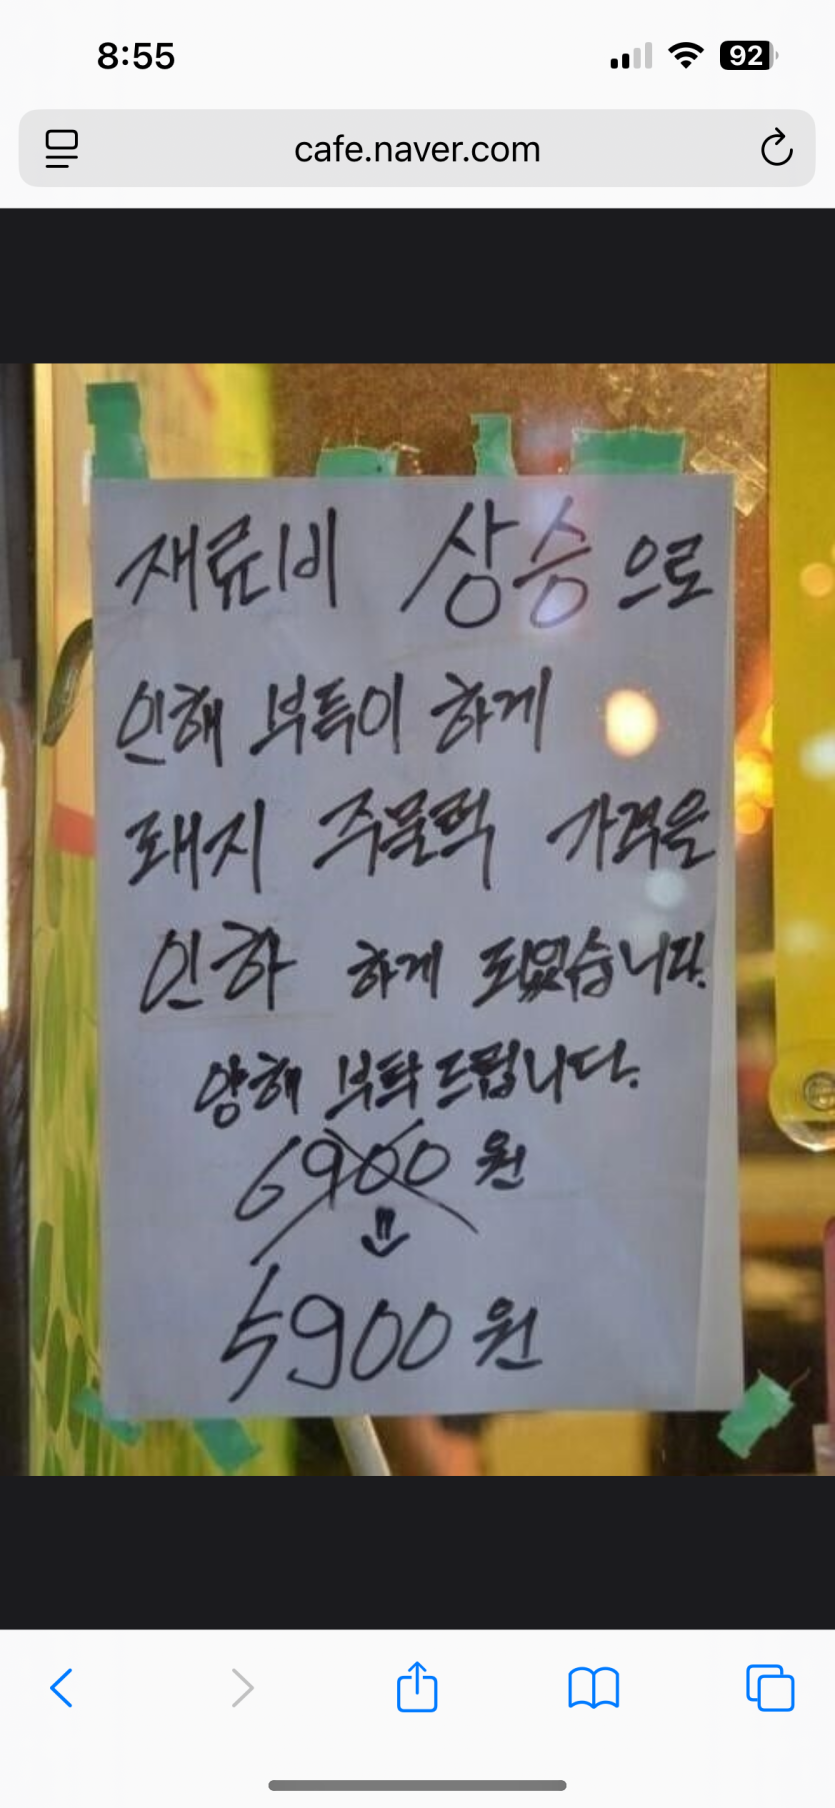 8:55
92
cafe.naver.com
재료비 상승으로
인해 부득이 하게
돼지 주물럭 가격을
인하 하게 되었습니다.
양해 부탁드립니다.
6900원
5900원